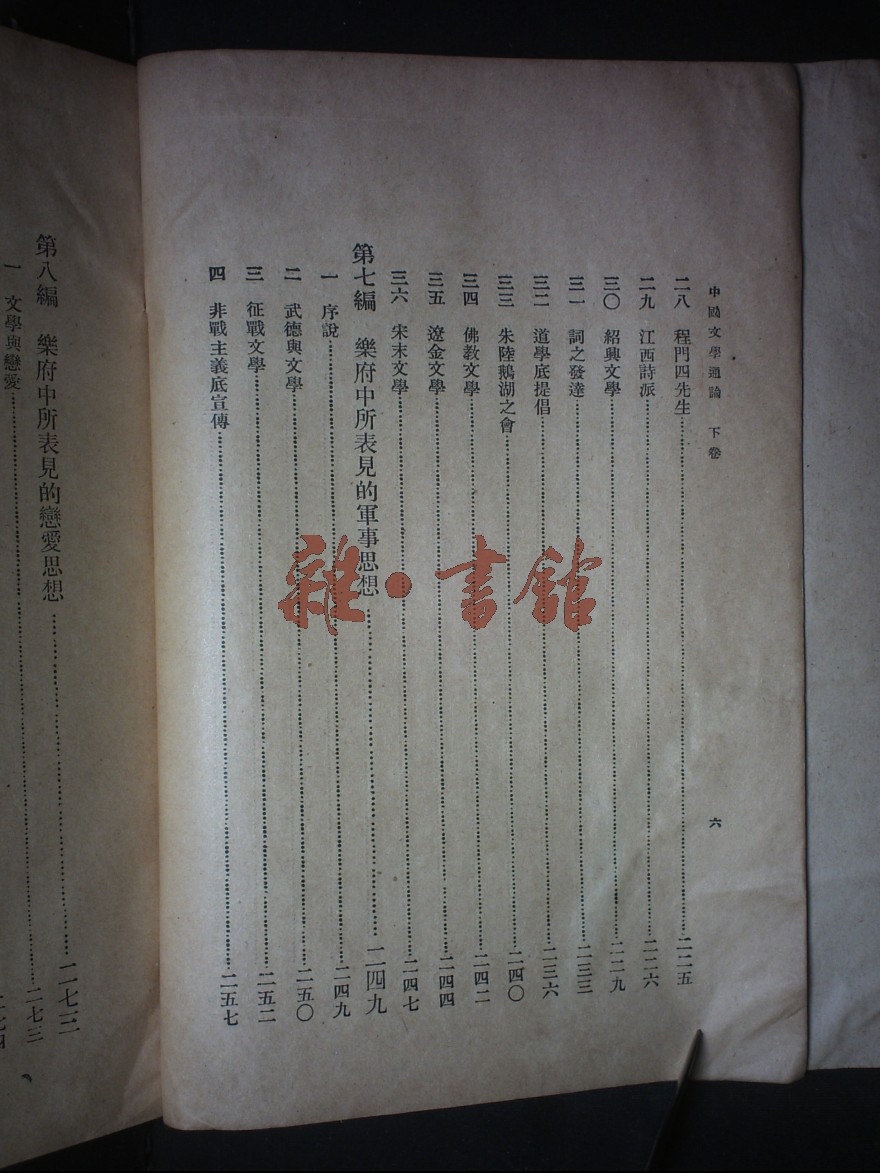 中國文學通論 下卷 六
二八 程門四先生 二二五
二九 江西詩派 二二六
三〇 紹興文學 二二九
三一 詞之發達 二三三
三二 道學底提倡 二三六
三三 朱陸鵝湖之會 二四〇
三四 佛教文學 二四二
三五 遼金文學 二四四
三六 宋末文學 二四七
第七編 樂府中所表見的軍事思想 二四九
一 序說 二四九
二 武德與文學 二五〇
三 征戰文學 二五二
四 非戰主義底宣傳 二五七
第八編 樂府中所表見的戀愛思想 二七三
一 文學與戀愛 二七三
雜·書館